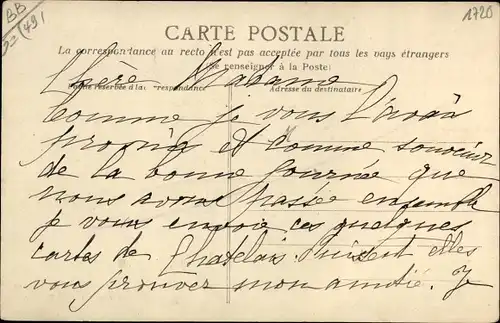 BB
1720
CARTE POSTALE
La correspondance au recto n'est pas acceptée par tous les pays étrangers
(Se renseigner à la Poste)
Chère Madame
Partie réservée à la correspondance
Adresse du destinataire
Comme je vous l'avais
promis et comme souvenir
de la bonne journée que
nous avons passée ensemble
je vous envoie ces quelques
cartes de Chatelais. Puissent elles
vous prouver mon amitié. Je